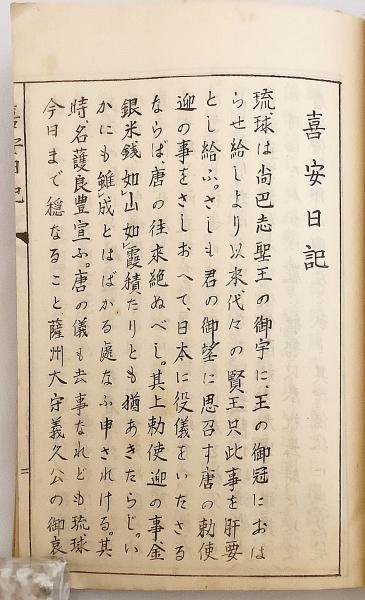 喜安日記
琉球は尚巴志聖王の御宇に、王の御冠におは
らせ給しより以来、代々の賢王只此事を肝要
とし給ふ。さしも君の御望に思召す唐の勅使
迎の事をさしおへて、日本に役儀をいたさる
ならば、唐の往来絶ぬべし。其上勅使迎の事、金
銀米銭如山如霞積たりとも猶あきたらじ。い
かにも雖成とはばかる処なふ申されける。其
時、名護良豊宣ふ。唐の儀も去事なれども琉球
今日まで穏なること、薩州大守義久公の御哀
喜安日記
二